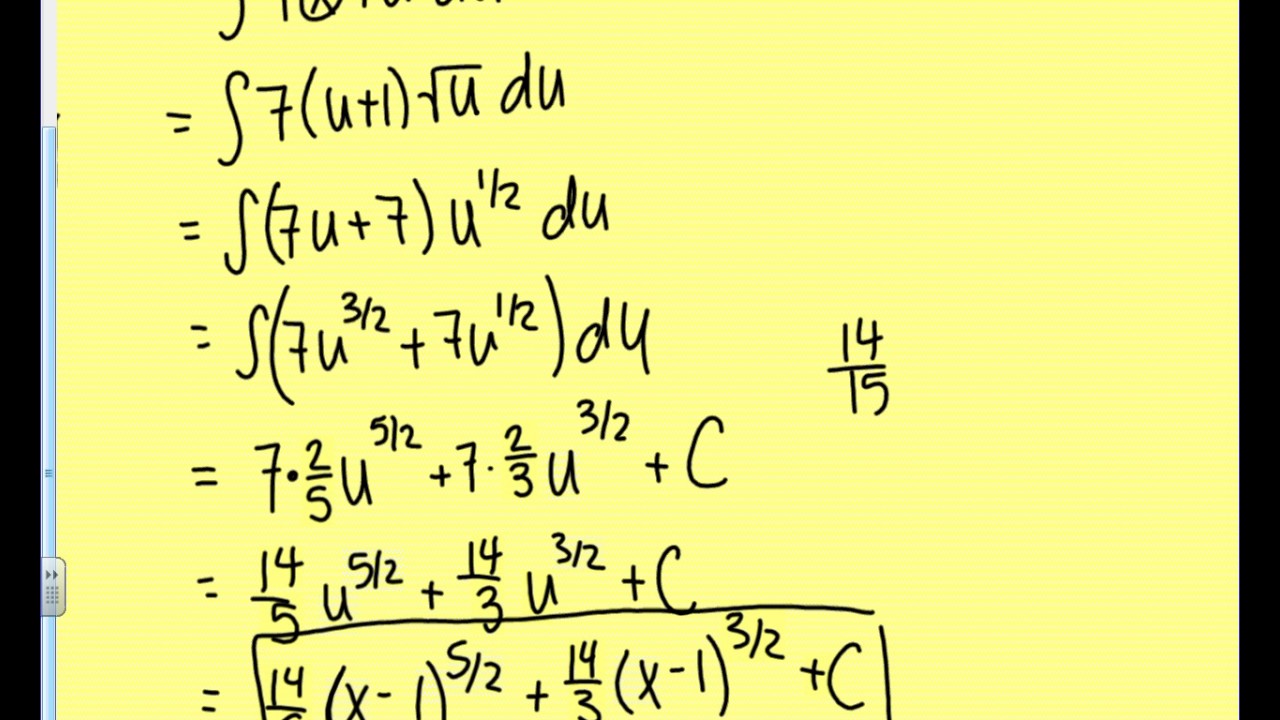 = ∫ 7(u+1) √u du
= ∫ (7u + 7) u^{1/2} du
= ∫ (7u^{3/2} + 7u^{1/2}) du
14/15
= 7 · 2/5 u^{5/2} + 7 · 2/3 u^{3/2} + C
= 14/5 u^{5/2} + 14/3 u^{3/2} + C
= 14/5 (x - 1)^{5/2} + 14/3 (x - 1)^{3/2} + C